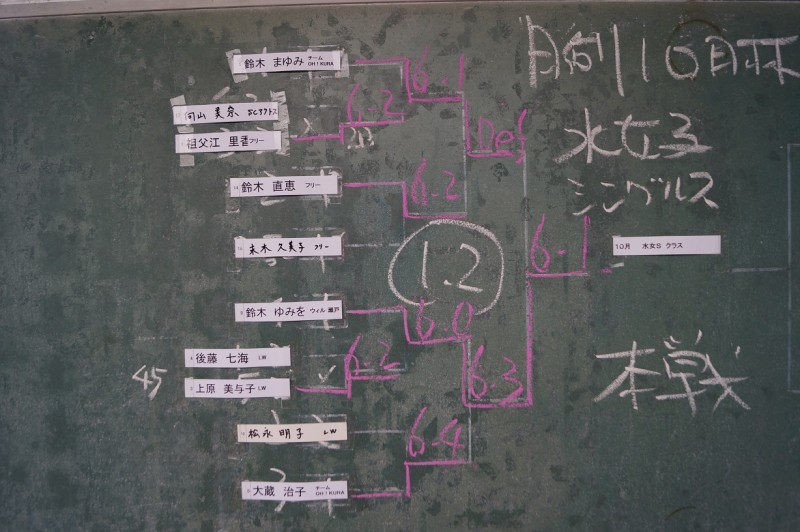 鈴木 まゆみ チーム OH!KURA
向山 美奈 SCサクトス
祖父江 里香 フリー
鈴木 直恵 フリー
末木 久美子 フリー
鈴木 ゆみを ウィル瀬戸
後藤 七海 LW
45
上原 美与子 LW
松永 明子 LW
大蔵 治子 チーム OH!KURA
6-1
6-2
Def
6-2
1.2
6-1
6-0
6-2
6-3
6-4
月例10月杯
水女子
シングルス
10月 水女S クラス
本戦